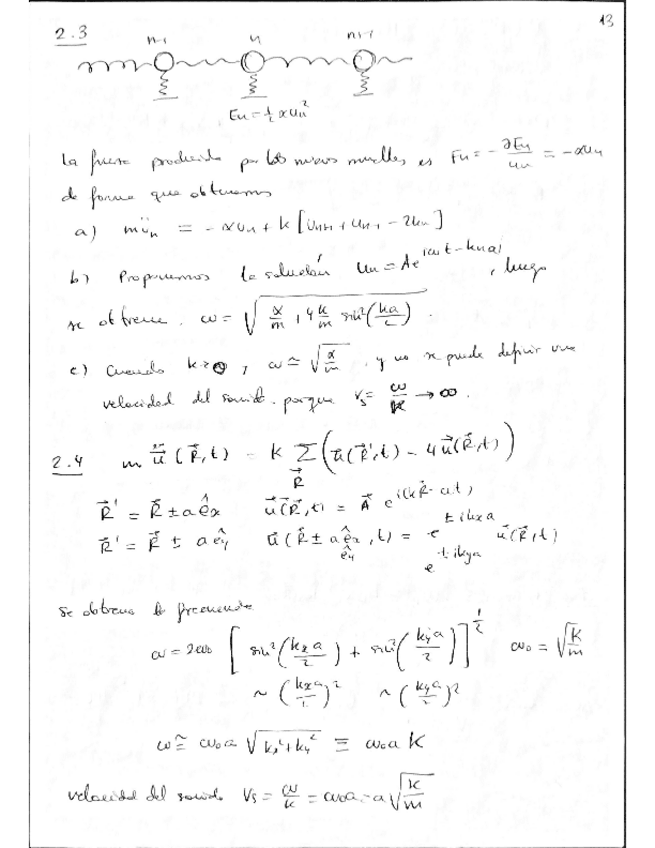 13
2.3
n-1 n n+1
En = ½ α un²
La fuerza producida por los nuevos muelles es Fn = - ∂En/∂un = -αun
de forma que obtenemos
a) mün = -αun + k [un+1 + un-1 - 2un]
b) Proponemos la solución un = Ae^i(ωt-kna), luego
se obtiene. ω = √(α/m + 4k/m sin²(ka/2)).
c) Cuando k→0, ω ≃ √(α/m), y no se puede definir una
velocidad del sonido. porque vs = ω/k → ∞.
2.4 m ü(R,t) = k Σ_R (u(R',t) - 4u(R,t))
R' = R ± a êx u(R,t) = A e^i(kR-ωt)
R' = R ± a êy u(R ± a êx, t) = e^±ikxa u(R,t)
êy e^±ikya
Se obtiene la frecuencia
ω = 2ω0 [sin²(kxa/2) + sin²(kya/2)]^½ ω0 = √(k/m)
~ (kxa/2)² ~ (kya/2)²
ω ≃ ω0 a √(kx² + ky²) ≡ ω0 a K
velocidad del sonido Vs = ω/k = ω0a = a√(k/m)